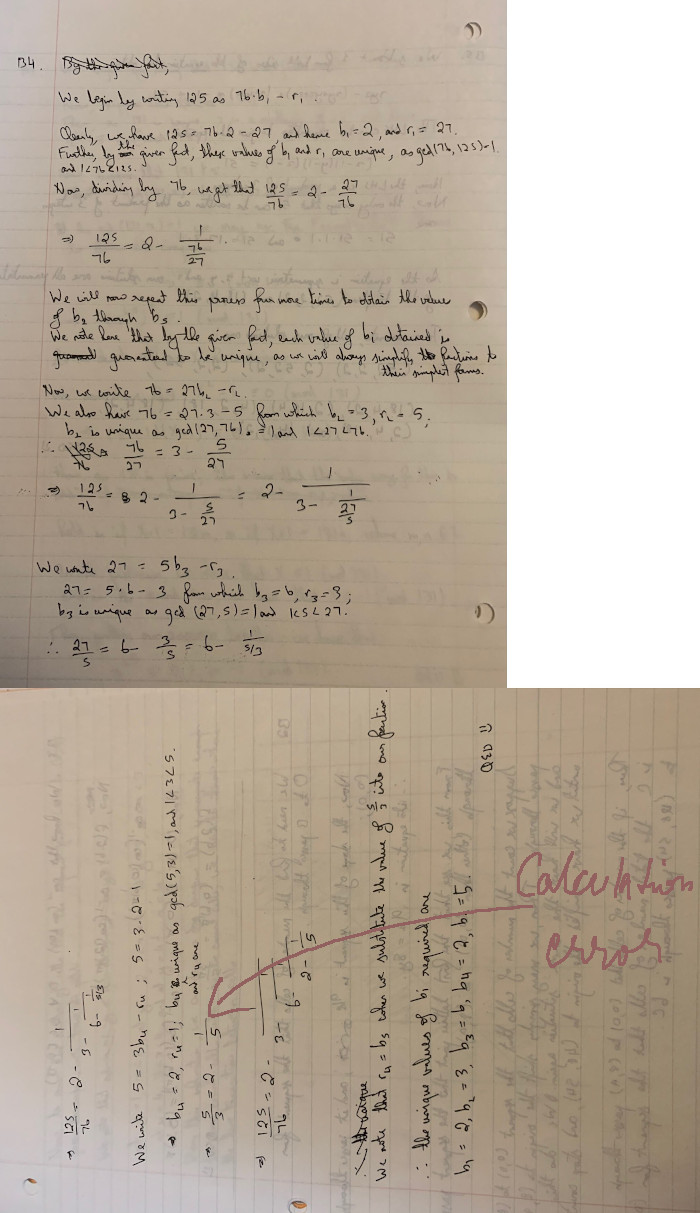 B4. By the given fact,
We begin by writing 125 as 76·b₁ - r₁.
Clearly, we have 125 = 76·2 - 27, and hence b₁ = 2, and r₁ = 27.
Further, by the given fact, these values of b₁ and r₁ are unique, as gcd(76, 125) = 1
and 1<76<125.
Now, dividing by 76, we get that 125/76 = 2 - 27/76
⇒ 125/76 = 2 - 1/(76/27)
We will now repeat this process four more times to obtain the value
of b₂ through b₅.
We note here that by the given fact, each value of bi obtained is
guaranteed to be unique, as we will always simplify fractions to
their simplest forms.
Now, we write 76 = 27b₂ - r₂.
We also have 76 = 27·3 - 5 from which b₂ = 3, r₂ = 5;
b₂ is unique as gcd(27,76) = 1 and 1<27<76.
∴ 125/76 76/27 = 3 - 5/27
⇒ 125/76 = 2 - 1/(3 - 5/27) = 2 - 1/(3 - 1/(27/5))
We write 27 = 5b₃ - r₃.
27 = 5·6 - 3 from which b₃ = 6, r₃ = 3;
b₃ is unique as gcd(27,5) = 1 and 1<5<27.
∴ 27/5 = 6 - 3/5 = 6 - 1/(5/3)
⇒ 125/76 = 2 - 1/(3 - 1/(6 - 1/(5/3)))
We write 5 = 3b₄ - r₄; 5 = 3·2 - 1
⇒ b₄ = 2, r₄ = 1; b₄ and r₄ are unique as gcd(5,3) = 1, and 1<3<5.
⇒ 5/3 = 2 - 1/5
⇒ 125/76 = 2 - 1/(3 - 1/(6 - 1/(2 - 1/5)))
We note that r₄ = b₅ when we substitute the value of 5/3 into our fraction.
∴ the unique values of bi required are
b₁ = 2, b₂ = 3, b₃ = 6, b₄ = 2, b₅ = 5.
QED
Calculation
error